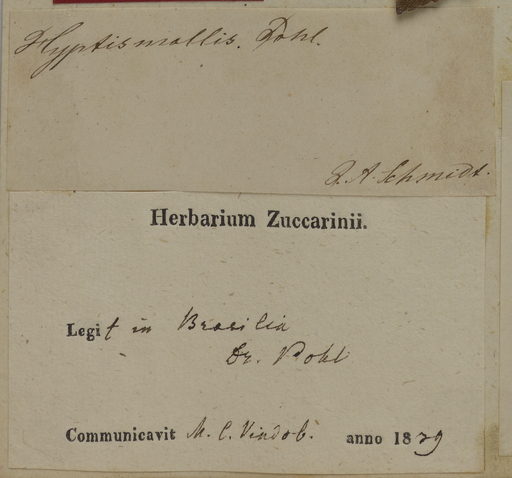 Hyptis mollis. Pohl.
J. A. Schmidt.
Herbarium Zuccarinii.
Legit in Brasilia
Dr. Pohl
Communicavit M. C. Vindob. anno 1829